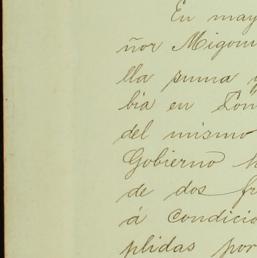 En may
ñor Migon
lla suma y
bía en Lon
del mismo
Gobierno h
de dos fr
á condicio
plidas por